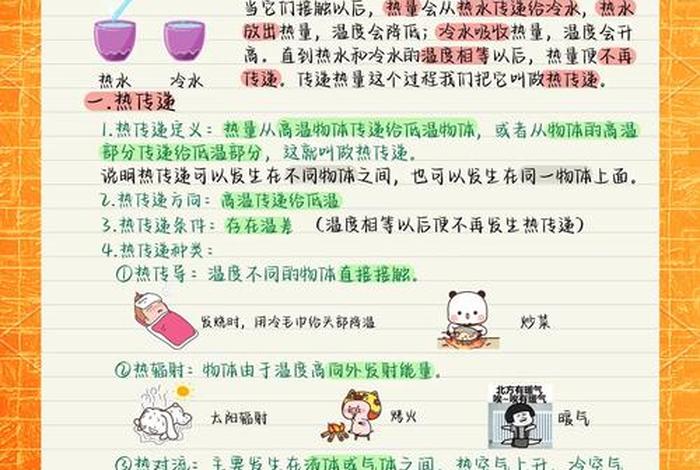 当它们接触以后，热量会从热水传递给冷水，热水
放出热量，温度会降低；冷水吸收热量，温度会升
高。直到热水和冷水的温度相等以后，热量便不再
传递。传递热量这个过程我们把它叫做热传递。
热水 冷水
一.热传递
1.热传递定义：热量从高温物体传递给低温物体，或者从物体的高温
部分传递给低温部分，这就叫做热传递。
说明热传递可以发生在不同物体之间，也可以发生在同一物体上面。
2.热传递方向：高温传递给低温
3.热传递条件：存在温差 （温度相等以后便不再发生热传递）
4.热传递种类：
①热传导：温度不同的物体直接接触。
发烧时，用冷毛巾给头部降温
炒菜
②热辐射：物体由于温度高向外发射能量。
太阳辐射
烤火
北方有暖气
唉~唉~有暖气
暖气
③热对流：主要发生在液体或气体之间，热空气上升，冷空气